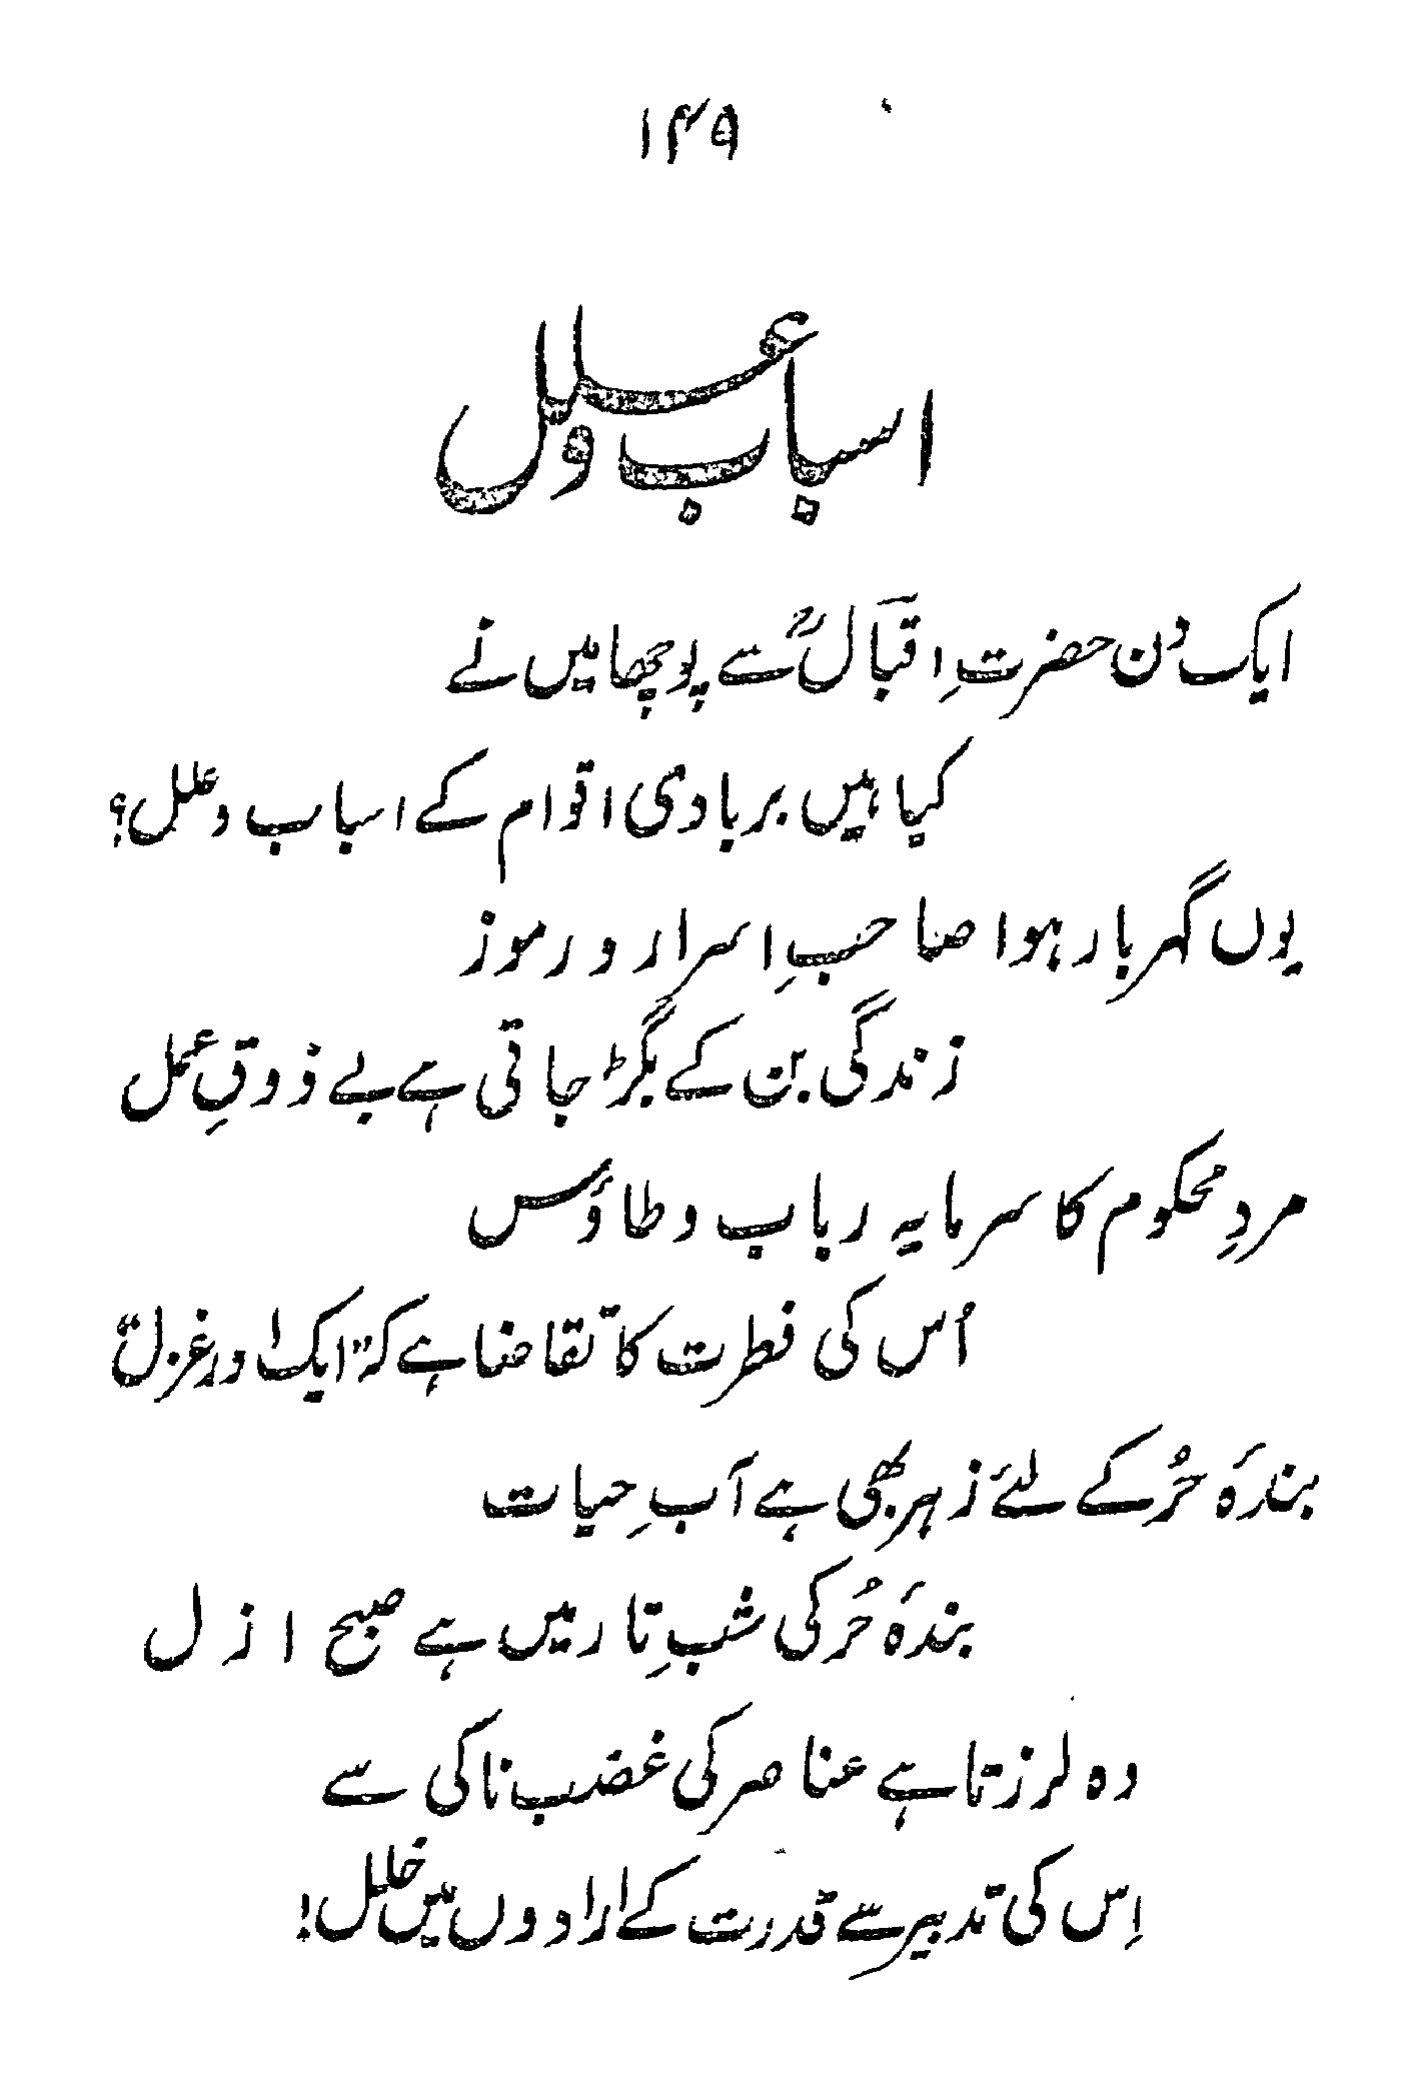 ۱۴۹
اسباب و علل
ایک دن حضرتِ اقبالؒ سے پوچھا میں نے
کیا ہیں بربادی اقوام کے اسباب و علل؟
یوں گہر بار ہوا صاحبِ اسرار و رموز
زندگی بن کے بگڑ جاتی ہے بے ذوقِ عمل
مردِ محکوم کا سرمایہ رباب و طاؤس
اُس کی فطرت کا تقاضا ہے کہ "ایک اور غزل"
بندۂ حُر کے لئے زہر بھی ہے آبِ حیات
بندۂ حُر کی شبِ تار میں ہے صبح ازل
وہ لرزتا ہے عناصر کی غضب ناکی سے
اِس کی تدبیر سے قدرت کے ارادوں میں خلل!